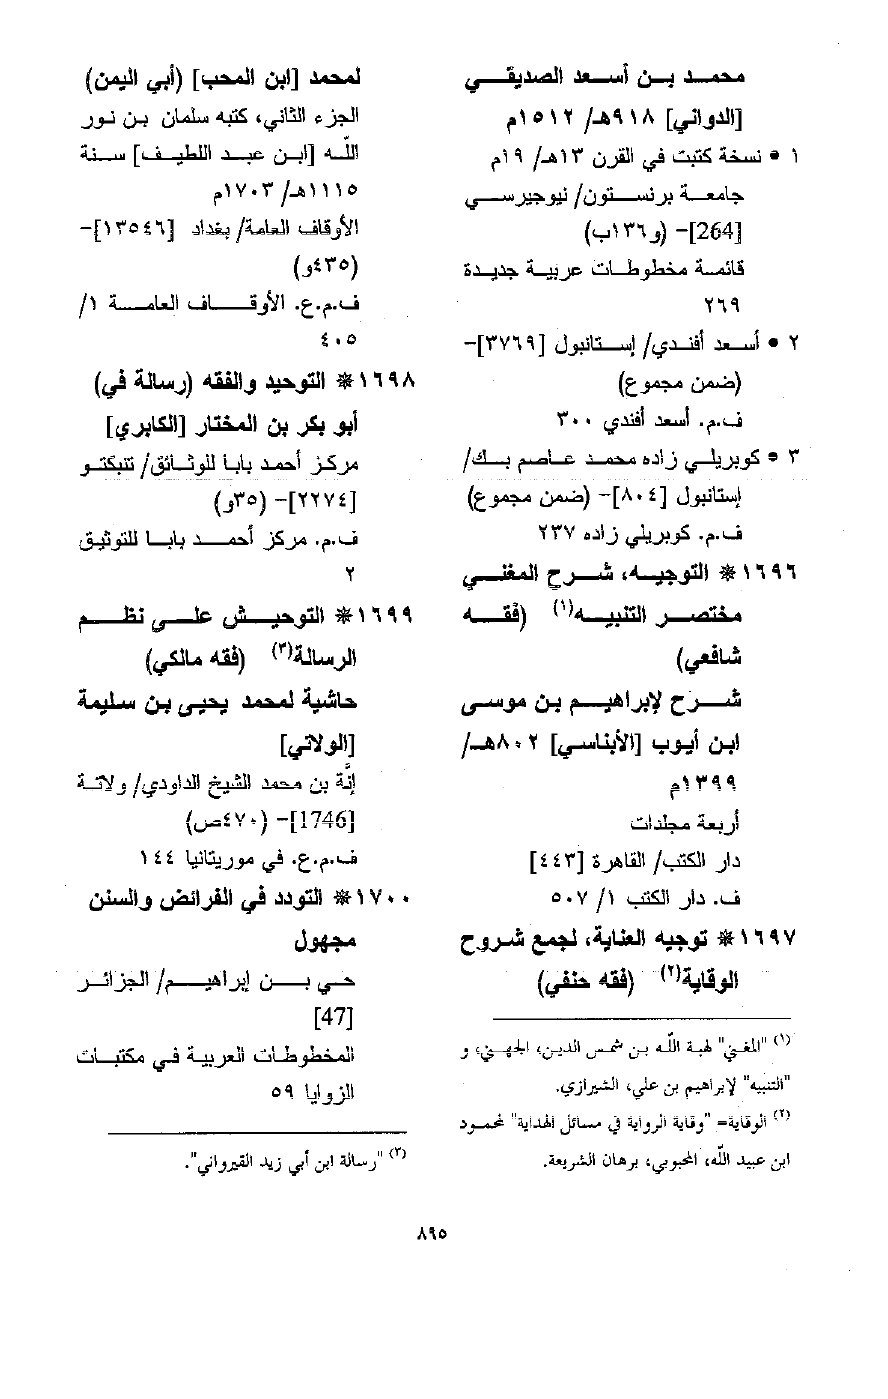 محمد بن أسعد الصديقي
[الدواني] ٩١٨هـ/ ١٥١٢م
١ • نسخة كتبت في القرن ١٣هـ/ ١٩م
جامعة برنستون/ نيوجيرسي
[264]- (و١٣٦ب)
قائمة مخطوطات عربية جديدة
٢٦٩
٢ • أسعد أفندي/ إستانبول [٣٧٦٩]-
(ضمن مجموع)
ف.م. أسعد أفندي ٣٠٠
٣ • كوبريلي زاده محمد عاصم بك/
إستانبول [٨٠٤]- (ضمن مجموع)
ف.م. كوبريلي زاده ٢٣٧
١٦٩٦ * التوجيه، شرح المغني
مختصر التنبيه(١) (فقه
شافعي)
شرح لإبراهيم بن موسى
ابن أيوب [الأبناسي] ٨٠٢هـ/
١٣٩٩م
أربعة مجلدات
دار الكتب/ القاهرة [٤٤٣]
ف. دار الكتب ١/ ٥٠٧
١٦٩٧ * توجيه العناية، لجمع شروح
الوقاية(٢) (فقه حنفي)
(١) "المغني" لهبة اللّه بن شمس الدين، الجهني، و
"التنبيه" لإبراهيم بن علي، الشيرازي.
(٢) الوقاية= "وقاية الرواية في مسائل الهداية" لمحمود
ابن عبيد اللّه، المحبوبي، برهان الشريعة.
لمحمد [ابن المحب] (أبي اليمن)
الجزء الثاني، كتبه سلمان بن نور
اللّه [ابن عبد اللطيف] سنة
١١١٥هـ/ ١٧٠٣م
الأوقاف العامة/ بغداد [١٣٥٤٦]-
(٤٣٥و)
ف.م.ع. الأوقاف العامة ١/
٤٠٥
١٦٩٨ * التوحيد والفقه (رسالة في)
أبو بكر بن المختار [الكابري]
مركز أحمد بابا للوثائق/ تنبكتو
[٢٢٧٤]- (٣٥و)
ف.م. مركز أحمد بابا للتوثيق
٢
١٦٩٩ * التوحيش على نظم
الرسالة(٣) (فقه مالكي)
حاشية لمحمد يحيى بن سليمة
[الولاتي]
إنَّة بن محمد الشيخ الداودي/ ولاتة
[1746]- (٤٧٠ص)
ف.م.ع. في موريتانيا ١٤٤
١٧٠٠ * التودد في الفرائض والسنن
مجهول
حي بن إبراهيم/ الجزائر
[47]
المخطوطات العربية في مكتبات
الزوايا ٥٩
(٣) "رسالة ابن أبي زيد القيرواني".
٨٩٥